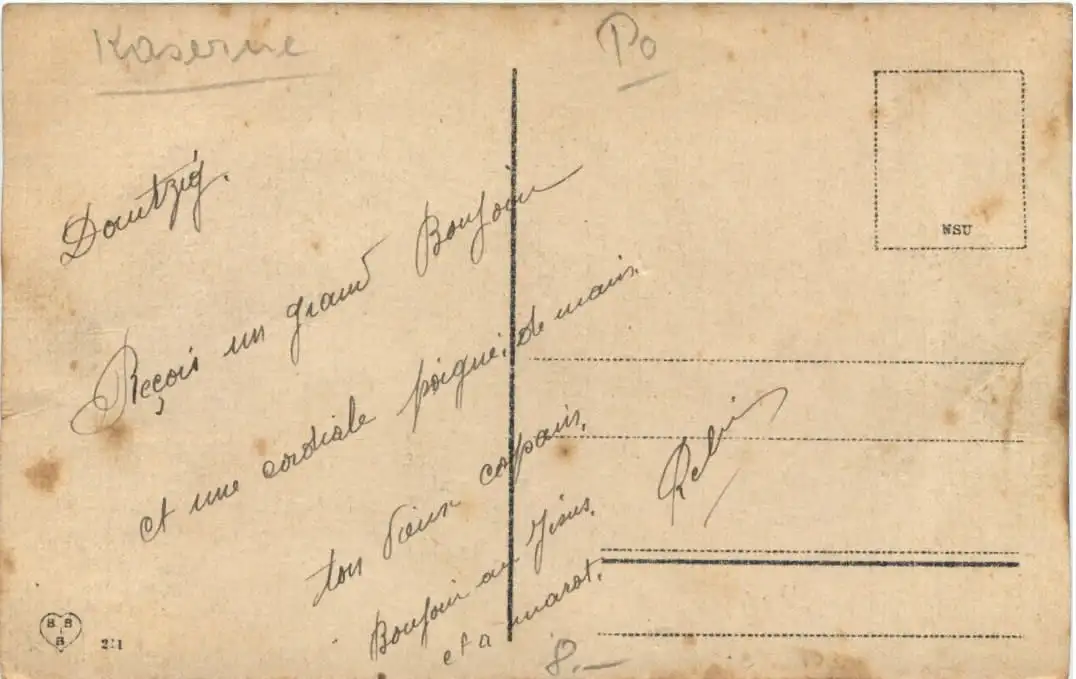 Kaserne
Po
Dantzig.
Reçois un grand Bonjour
et une cordiale poigné. de main.
ton vieux copain.
Bonjour au
et a marot.
NSU
B B
B
8.—